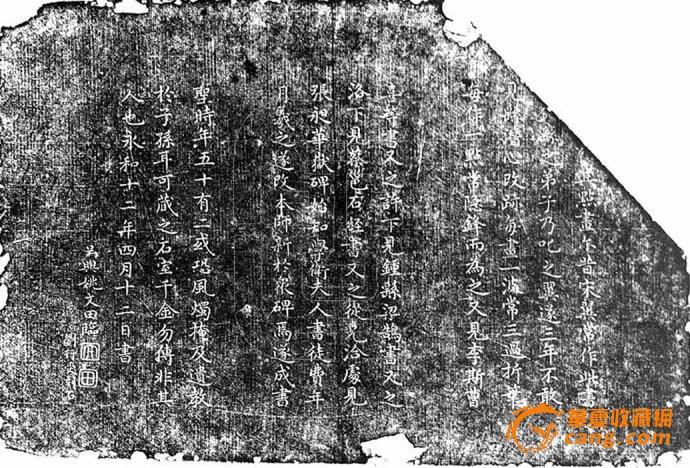 點畫尓昔宋翼常作此書
之弟子乃叱之翼遂三年不敢
見 潛心改跡每畫一波常三過折筆
每作一點常隱鋒而為之又見李斯曹
喜等書又之許下見鍾繇梁鵠書又之
洛下見蔡邕石經書又之從兄洽處見
張昶華嶽碑始知學衛夫人書徒費年
月羲之遂改本師新於衆碑焉遂成書
聖時年五十有二或恐風燭掩及遺教
於子孫耳可藏之石室千金勿傳非其
人也永和十二年四月十二日書
吳興姚文田臨
華夏收藏網
cang.com